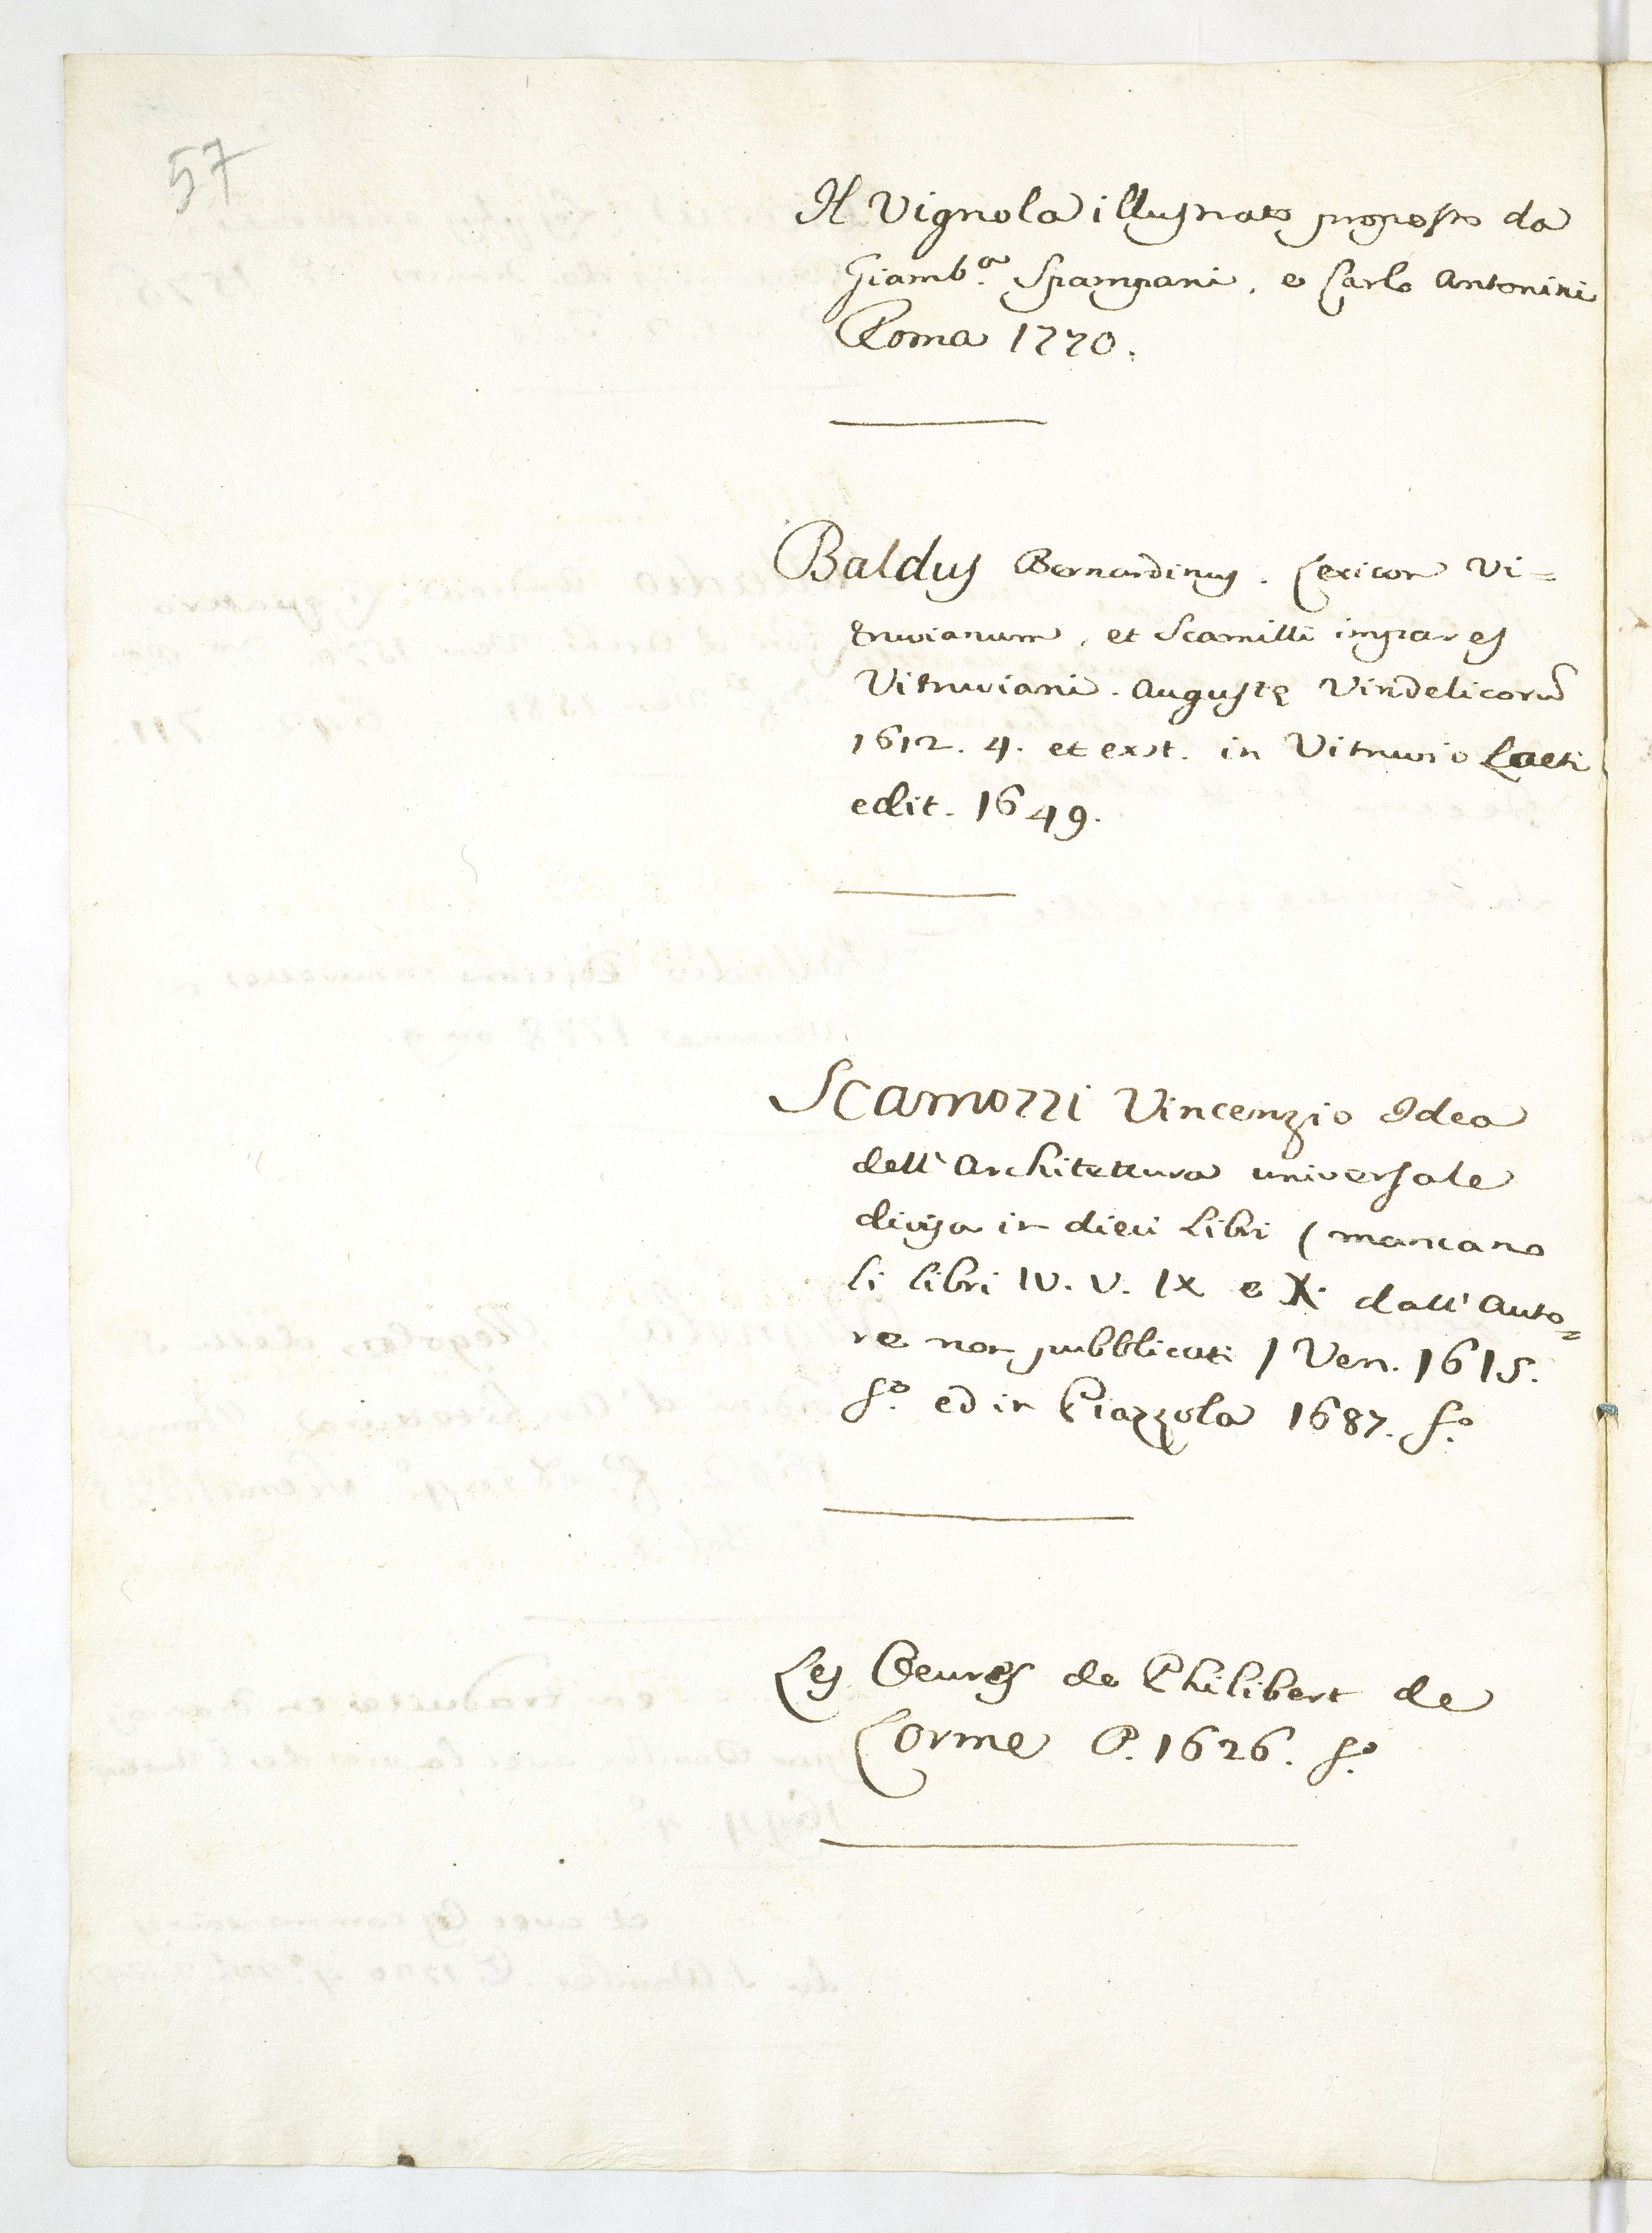 57
Il Vignola illustrato proposto da
Giamb.a Spampani, e Carlo Antonini
Roma 1770.
Baldus Bernardinus. Lexicon Vi=
truvianum, et Scamilli impares
Vitruviani. Augustę Vindelicorū
1612. 4. et ext. in Vitruvio Laeti
edit. 1649.
Scamozzi Vincenzio Idea
dell'Architettura universale
divisa in dieci Libri (mancano
li libri IV. V. IX e X. dall'Auto=
re non pubblicati) Ven. 1615.
f.o ed in Piazzola 1687. f.o
Les Oeuvres de Philibert de
Lorme P. 1626. f.o